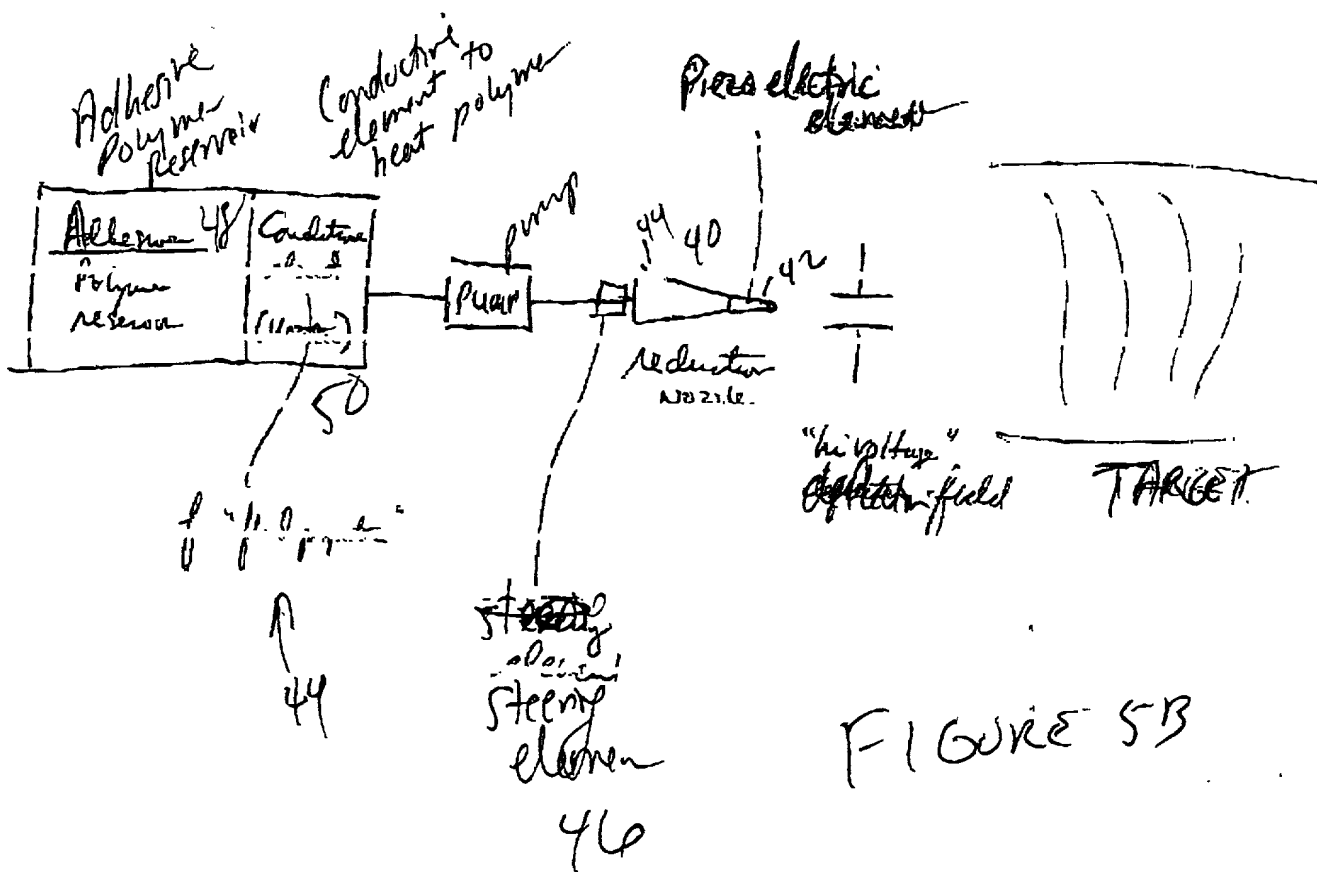 Adhesive
Polymer
Reservoir
Conductive
element to
heat polymer
Piezoelectric
element
pump
Adhesive 48
Polymer
reservoir
Conductive
50
Pump
44 40
42
reduction
nozzle.
"hi voltage"
deflection field
TARGET
44
steering
steering
element
46
FIGURE 5B